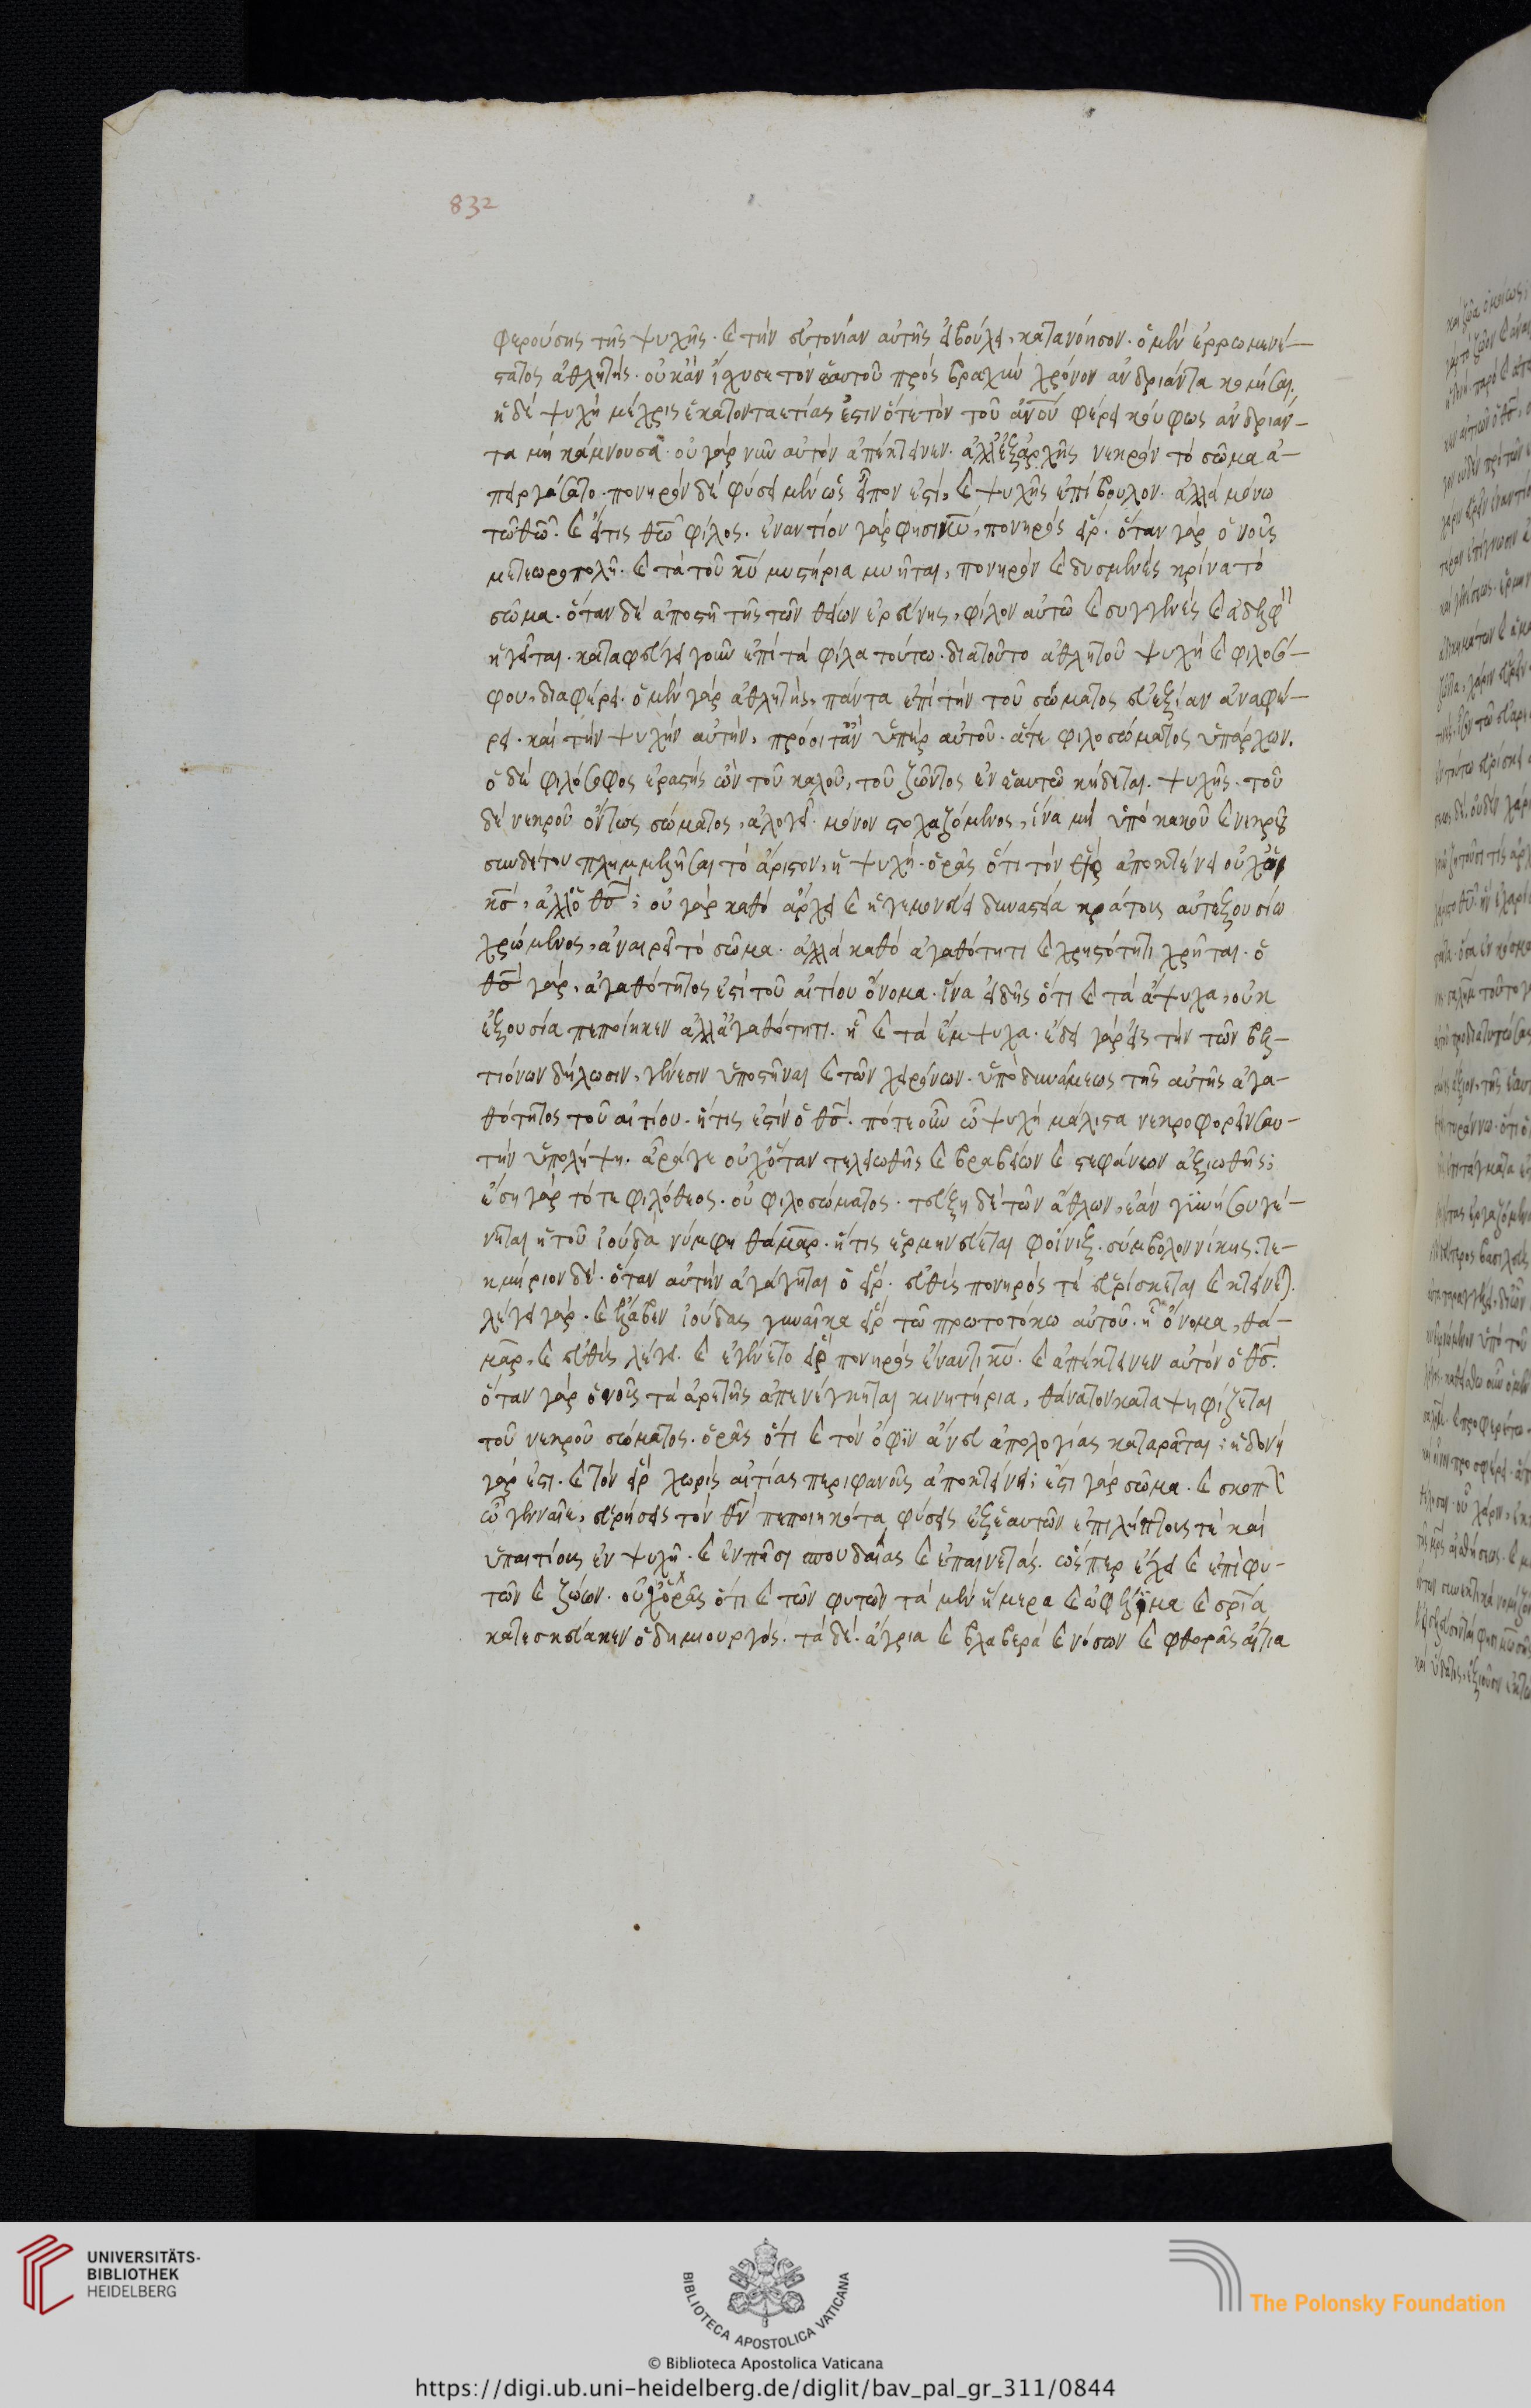 832
φερούσης τῆς ψυχῆς. καὶ τὴν εὐτονίαν αὐτῆς εἰ βούλει, κατανόησον. ὁ μὲν ἐρρωμενέ-
στατος ἀθλητὴς. οὐκ ἂν ἴσχυσε τὸν ἑαυτοῦ πρὸς βραχὺν χρόνον ἀνδριάντα κομίσαι.
ἡ δὲ ψυχὴ μέχρις ἑκατονταετίας ἔστιν ὅτε τὸν τοῦ ἀνου φέρει κούφως ἀνδριάν-
τα μὴ κάμνουσα. οὐ γὰρ νῦν αὐτὸν ἀπέκτεινεν. ἀλλ' ἐξ ἀρχῆς νεκρὸν τὸ σῶμα ἀ-
πειργάσατο. πονηρὸν δὲ φύσει μὲν ὡς εἶπον ἐστὶ, καὶ ψυχῆς ἐπίβουλον. ἀλλὰ μόνω
τῶ θῶ. καὶ εἴ τις θῶ φίλος. ἐναντίον γὰρ φησὶ κυ, πονηρὸς εἴρ. ὅταν γὰρ ὁ νοῦς
μετεωροπολῆ. καὶ τὰ τοῦ κυ μυστήρια μυῆται, πονηρὸν καὶ δυσμενὲς κρίνει τὸ
σῶμα. ὅταν δὲ ἀποστῆ τῆς τῶν θείων ἐρεύνης, φίλον αὐτῶ καὶ συγγενὲς καὶ ἀδελφ
ἡγεῖται. καταφεύγει γοῦν ἐπὶ τὰ φίλα τούτω. διατοῦτο ἀθλητοῦ ψυχὴ καὶ φιλοσό-
φου, διαφέρει. ὁ μὲν γὰρ ἀθλητὴς, πάντα ἐπὶ τὴν τοῦ σώματος εὐεξίαν ἀναφέ-
ρει. καὶ τὴν ψυχὴν αὐτὴν, πρόοιτ' ἂν ὑπὲρ αὐτοῦ. ἅτε φιλοσώματος ὑπάρχων.
ὁ δὲ φιλόσοφος ἐραστὴς ὢν τοῦ καλοῦ, τοῦ ζῶντος ἐν ἑαυτῶ κήδεται. ψυχῆς. τοῦ
δὲ νεκροῦ ὄντως σώματος, ἀλογεῖ. μόνον στοχαζόμενος, ἵνα μὴ ὑπὸ κακοῦ καὶ νεκροῦ
συνδέτου πλημμελῆσαι τὸ ἄριστον, ἡ ψυχή. ὁρᾶς ὅτι τὸν εἴρ ἀποκτείνει οὐχ ὁ
κσ, ἀλλ' ὁ θσ; οὐ γὰρ καθὸ ἄρχει καὶ ἡγεμονεύει δυναστεία κράτους αὐτεξουσίω
χρώμενος, ἀναιρεῖ τὸ σῶμα. ἀλλὰ καθὸ ἀγαθότητι καὶ χρηστότητι χρῆται. ὁ
θσ γὰρ, ἀγαθότητος ἐστὶ τοῦ αἰτίου ὄνομα. ἵνα εἰδῆς ὅτι καὶ τὰ ἄψυχα, οὐκ
ἐξουσία πεποίηκεν ἀλλ' ἀγαθότητι. ἧ καὶ τὰ ἔμψυχα. ἔδει γὰρ εἰς τὴν τῶν βελ-
τιόνων δήλωσιν, γένεσιν ὑποστῆναι καὶ τῶν χειρόνων. ὑπὸ δυνάμεως τῆς αὐτῆς ἀγα-
θότητος τοῦ αἰτίου. ἥτις ἐστὶν ὁ θσ. πότε οὖν ὦ ψυχὴ μάλιστα νεκροφορεῖν σαυ-
τὴν ὑπολήψη. ἆράγε οὐχ ὅταν τελειωθῆς καὶ βραβείων καὶ στεφάνων ἀξιωθῆς;
ἔση γὰρ τότε φιλόθεος. οὐ φιλοσώματος. τεύξη δὲ τῶν ἄθλων, ἐὰν γυνή σου γέ-
νηται ἡ τοῦ ἰούδα νύμφη θάμαρ. ἥτις ἑρμηνεύεται φοίνιξ. σύμβολον νίκης. τε-
κμήριον δέ. ὅταν αὐτὴν ἀγάγηται ὁ εἴρ. εὐθὺς πονηρός τε εὑρίσκεται καὶ κτείνεται.
λέγει γάρ. καὶ ἔλαβεν ἰούδας γυναῖκα εἴρ τῶ πρωτοτόκω αὐτοῦ. ἧ ὄνομα, θά-
μαρ. καὶ εὐθὺς λέγει. καὶ ἐγένετο εἴρ πονηρὸς ἐναντι κυ. καὶ ἀπέκτεινεν αὐτὸν ὁ θσ.
ὅταν γὰρ ὁ νοῦς τὰ ἀρετῆς ἀπενέγκηται νικητήρια, θάνατον καταψηφίζεται
τοῦ νεκροῦ σώματος. ὁρᾶς ὅτι καὶ τὸν ὄφιν ἄνευ ἀπολογίας καταρᾶται; ἡδονὴ
γὰρ ἐστι. καὶ τὸν εἴρ χωρὶς αἰτίας περιφανοῦς ἀποκτείνει; ἔστι γὰρ σῶμα. καὶ σκοπ
ὦ γενναῖε, εὑρήσεις τὸν θν πεποιηκότα φύσεις ἐξ ἑαυτῶν ἐπιλήπτους τὲ καὶ
ὑπαιτίους ἐν ψυχῆ. καὶ ἐν πᾶσι σπουδαίας καὶ ἐπαινετάς. ὥσπερ ἔχει καὶ ἐπὶ φυ-
τῶν καὶ ζώων. οὐχ ὁρᾶς ὅτι καὶ τῶν φυτῶν τὰ μὲν ἥμερα καὶ ὠφέλιμα καὶ σρία
κατεσκεύακεν ὁ δημιουργός. τὰ δὲ. ἄγρια καὶ βλαβερὰ καὶ νόσων καὶ φθορᾶς αἴτια
UNIVERSITÄTS-
BIBLIOTHEK
HEIDELBERG
BIBLIOTECA APOSTOLICA VATICANA
The Polonsky Foundation
© Biblioteca Apostolica Vaticana
https://digi.ub.uni-heidelberg.de/diglit/bav_pal_gr_311/0844